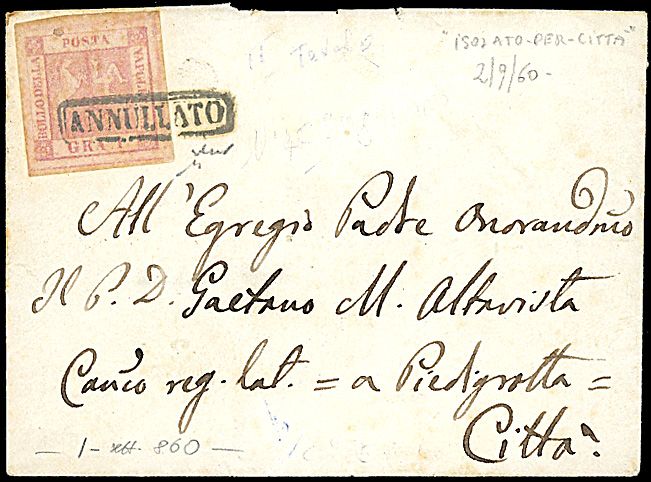 POSTA
BOLLO DELLA
NAPOLETANA
GRA
ANNULLATO
"ISOLATO-PER-CITTÀ"
2/9/60-
All'Egregio Padre Onorandmo
Il P. D. Gaetano M. Altavista
Canco reg. lat. = a Piedigrotta =
Città.
- 1 - sett. 860 -